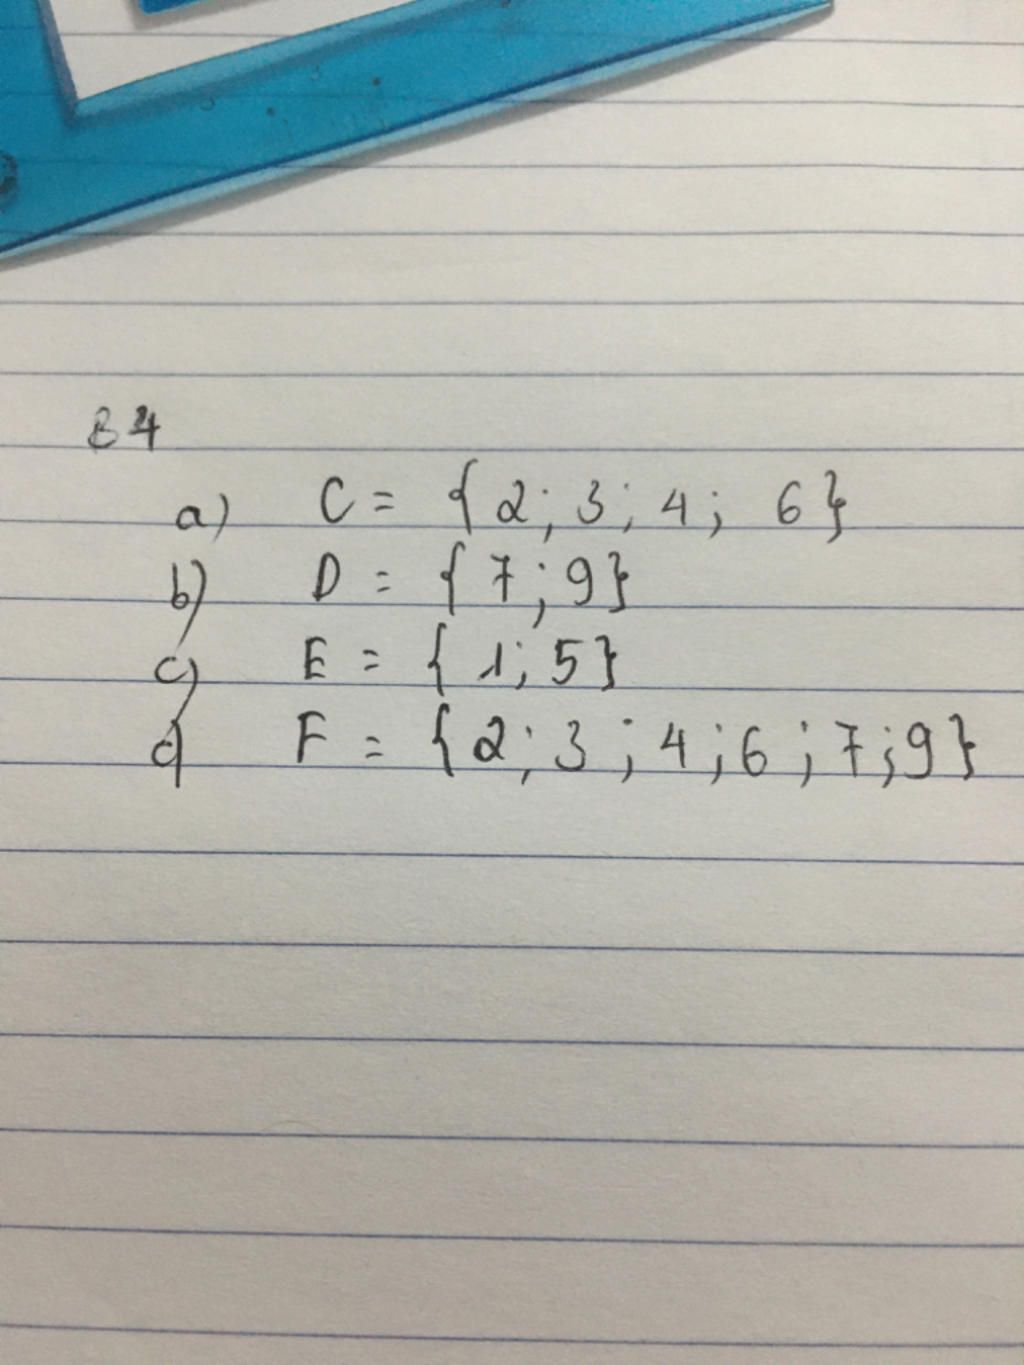 B4
a) C = { 2; 3; 4; 6}
b) D = { 7; 9}
c) E = { 1; 5}
d) F = { 2; 3; 4; 6; 7; 9}